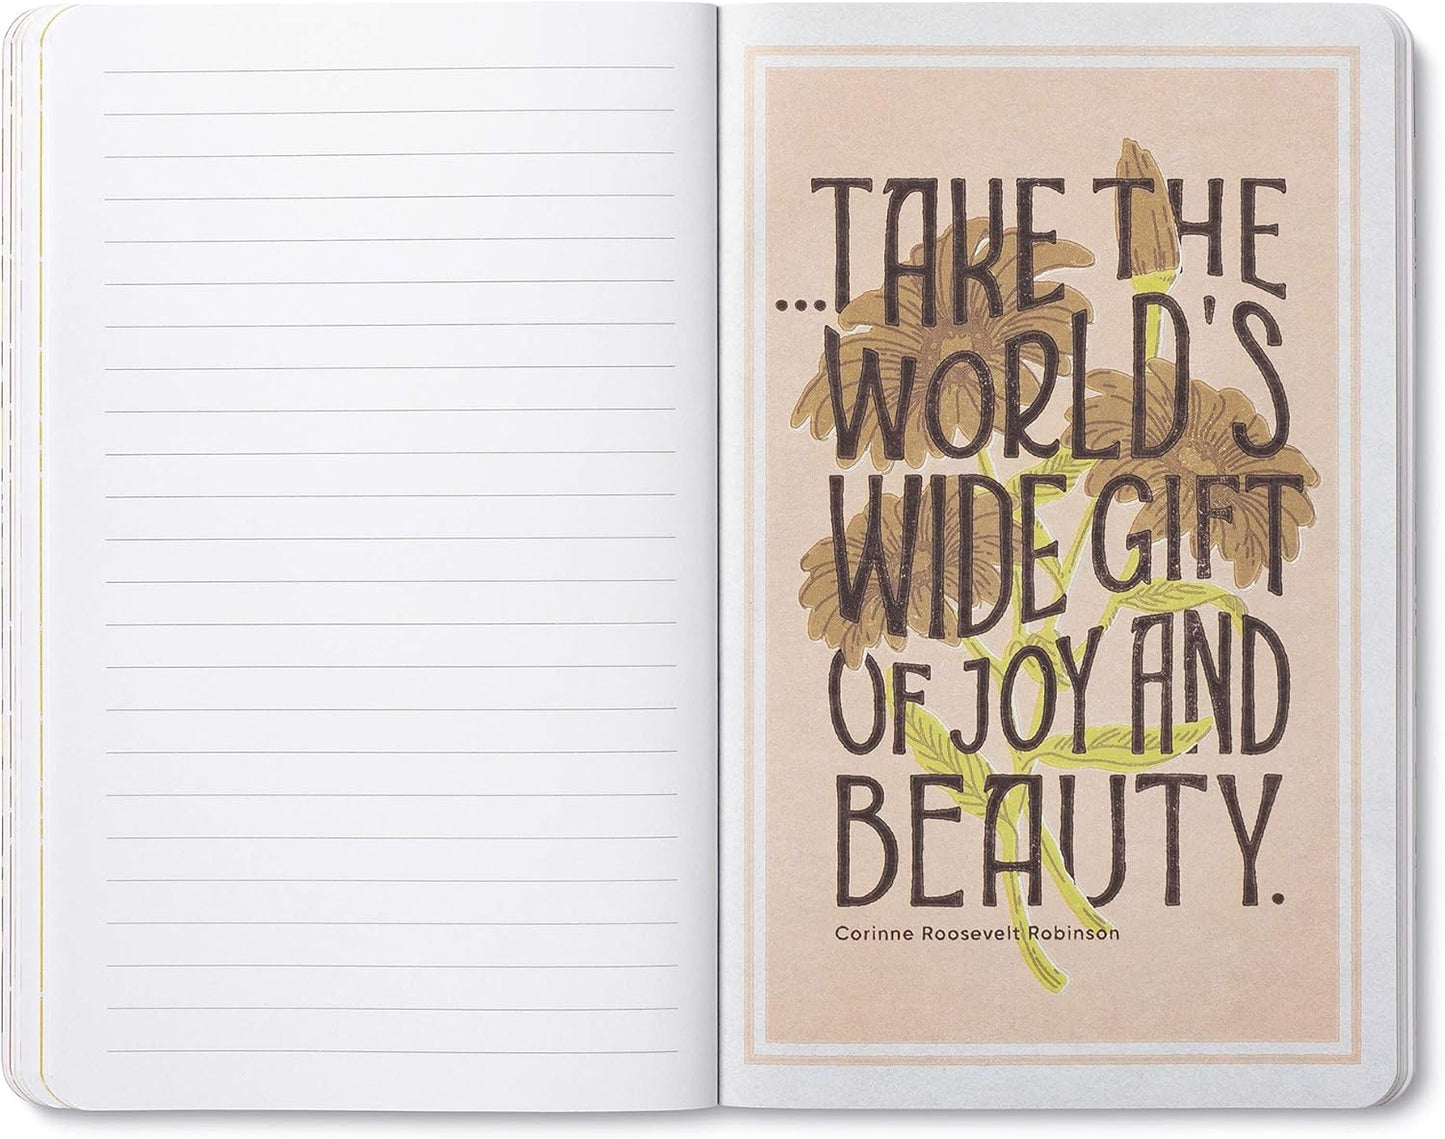 ...TAKE THE
WORLD'S
WIDE GIFT
OF JOY AND
BEAUTY.
Corinne Roosevelt Robinson